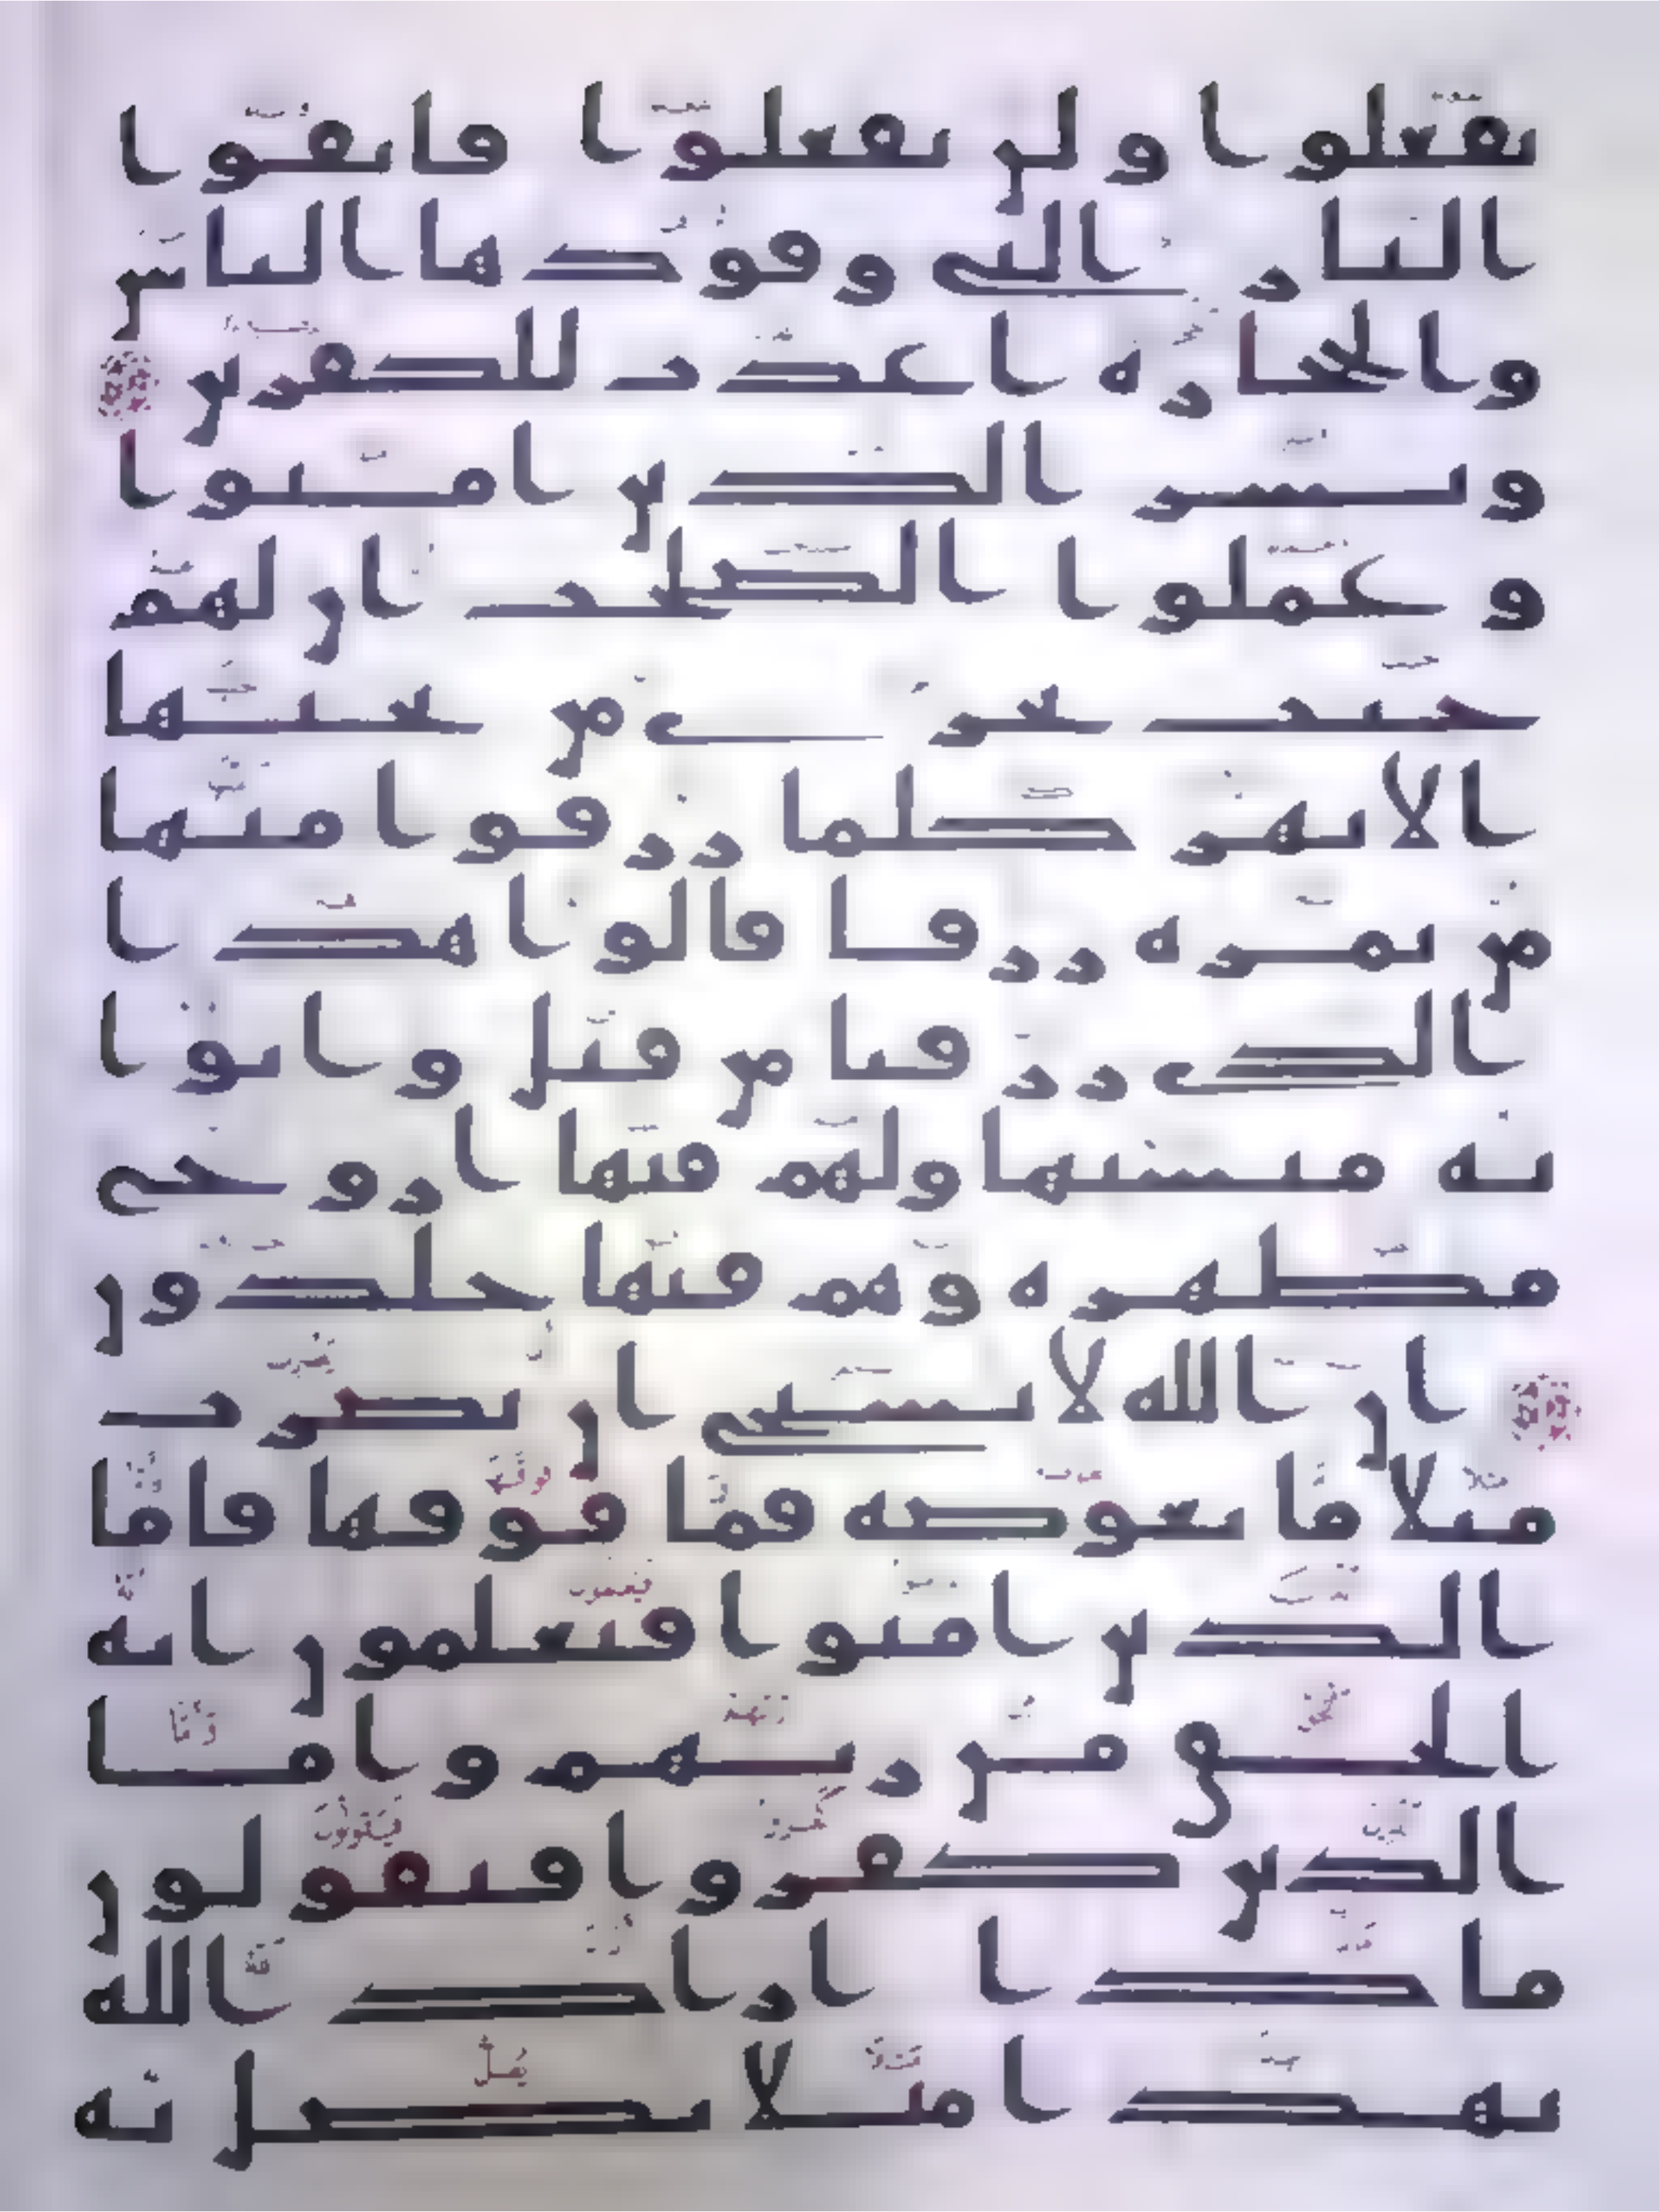 تفعلوا ولن تفعلوا فاتقوا
النار التي وقودها الناس
والحجارة اعدت للكفرين
وبشر الذين امنوا
وعملوا الصلحت ان لهم
جنت تجري من تحتها
الانهر كلما رزقوا منها
من ثمرة رزقا قالوا هذا
الذي رزقنا من قبل واتوا
به متشبها ولهم فيها ازوج
مطهرة وهم فيها خلدون
ان الله لا يستحي ان يضرب
مثلا ما بعوضة فما فوقها فاما
الذين امنوا فيعلمون انه
الحق من ربهم واما
الذين كفروا فيقولون
ماذا اراد الله
بهذا مثلا يضل به